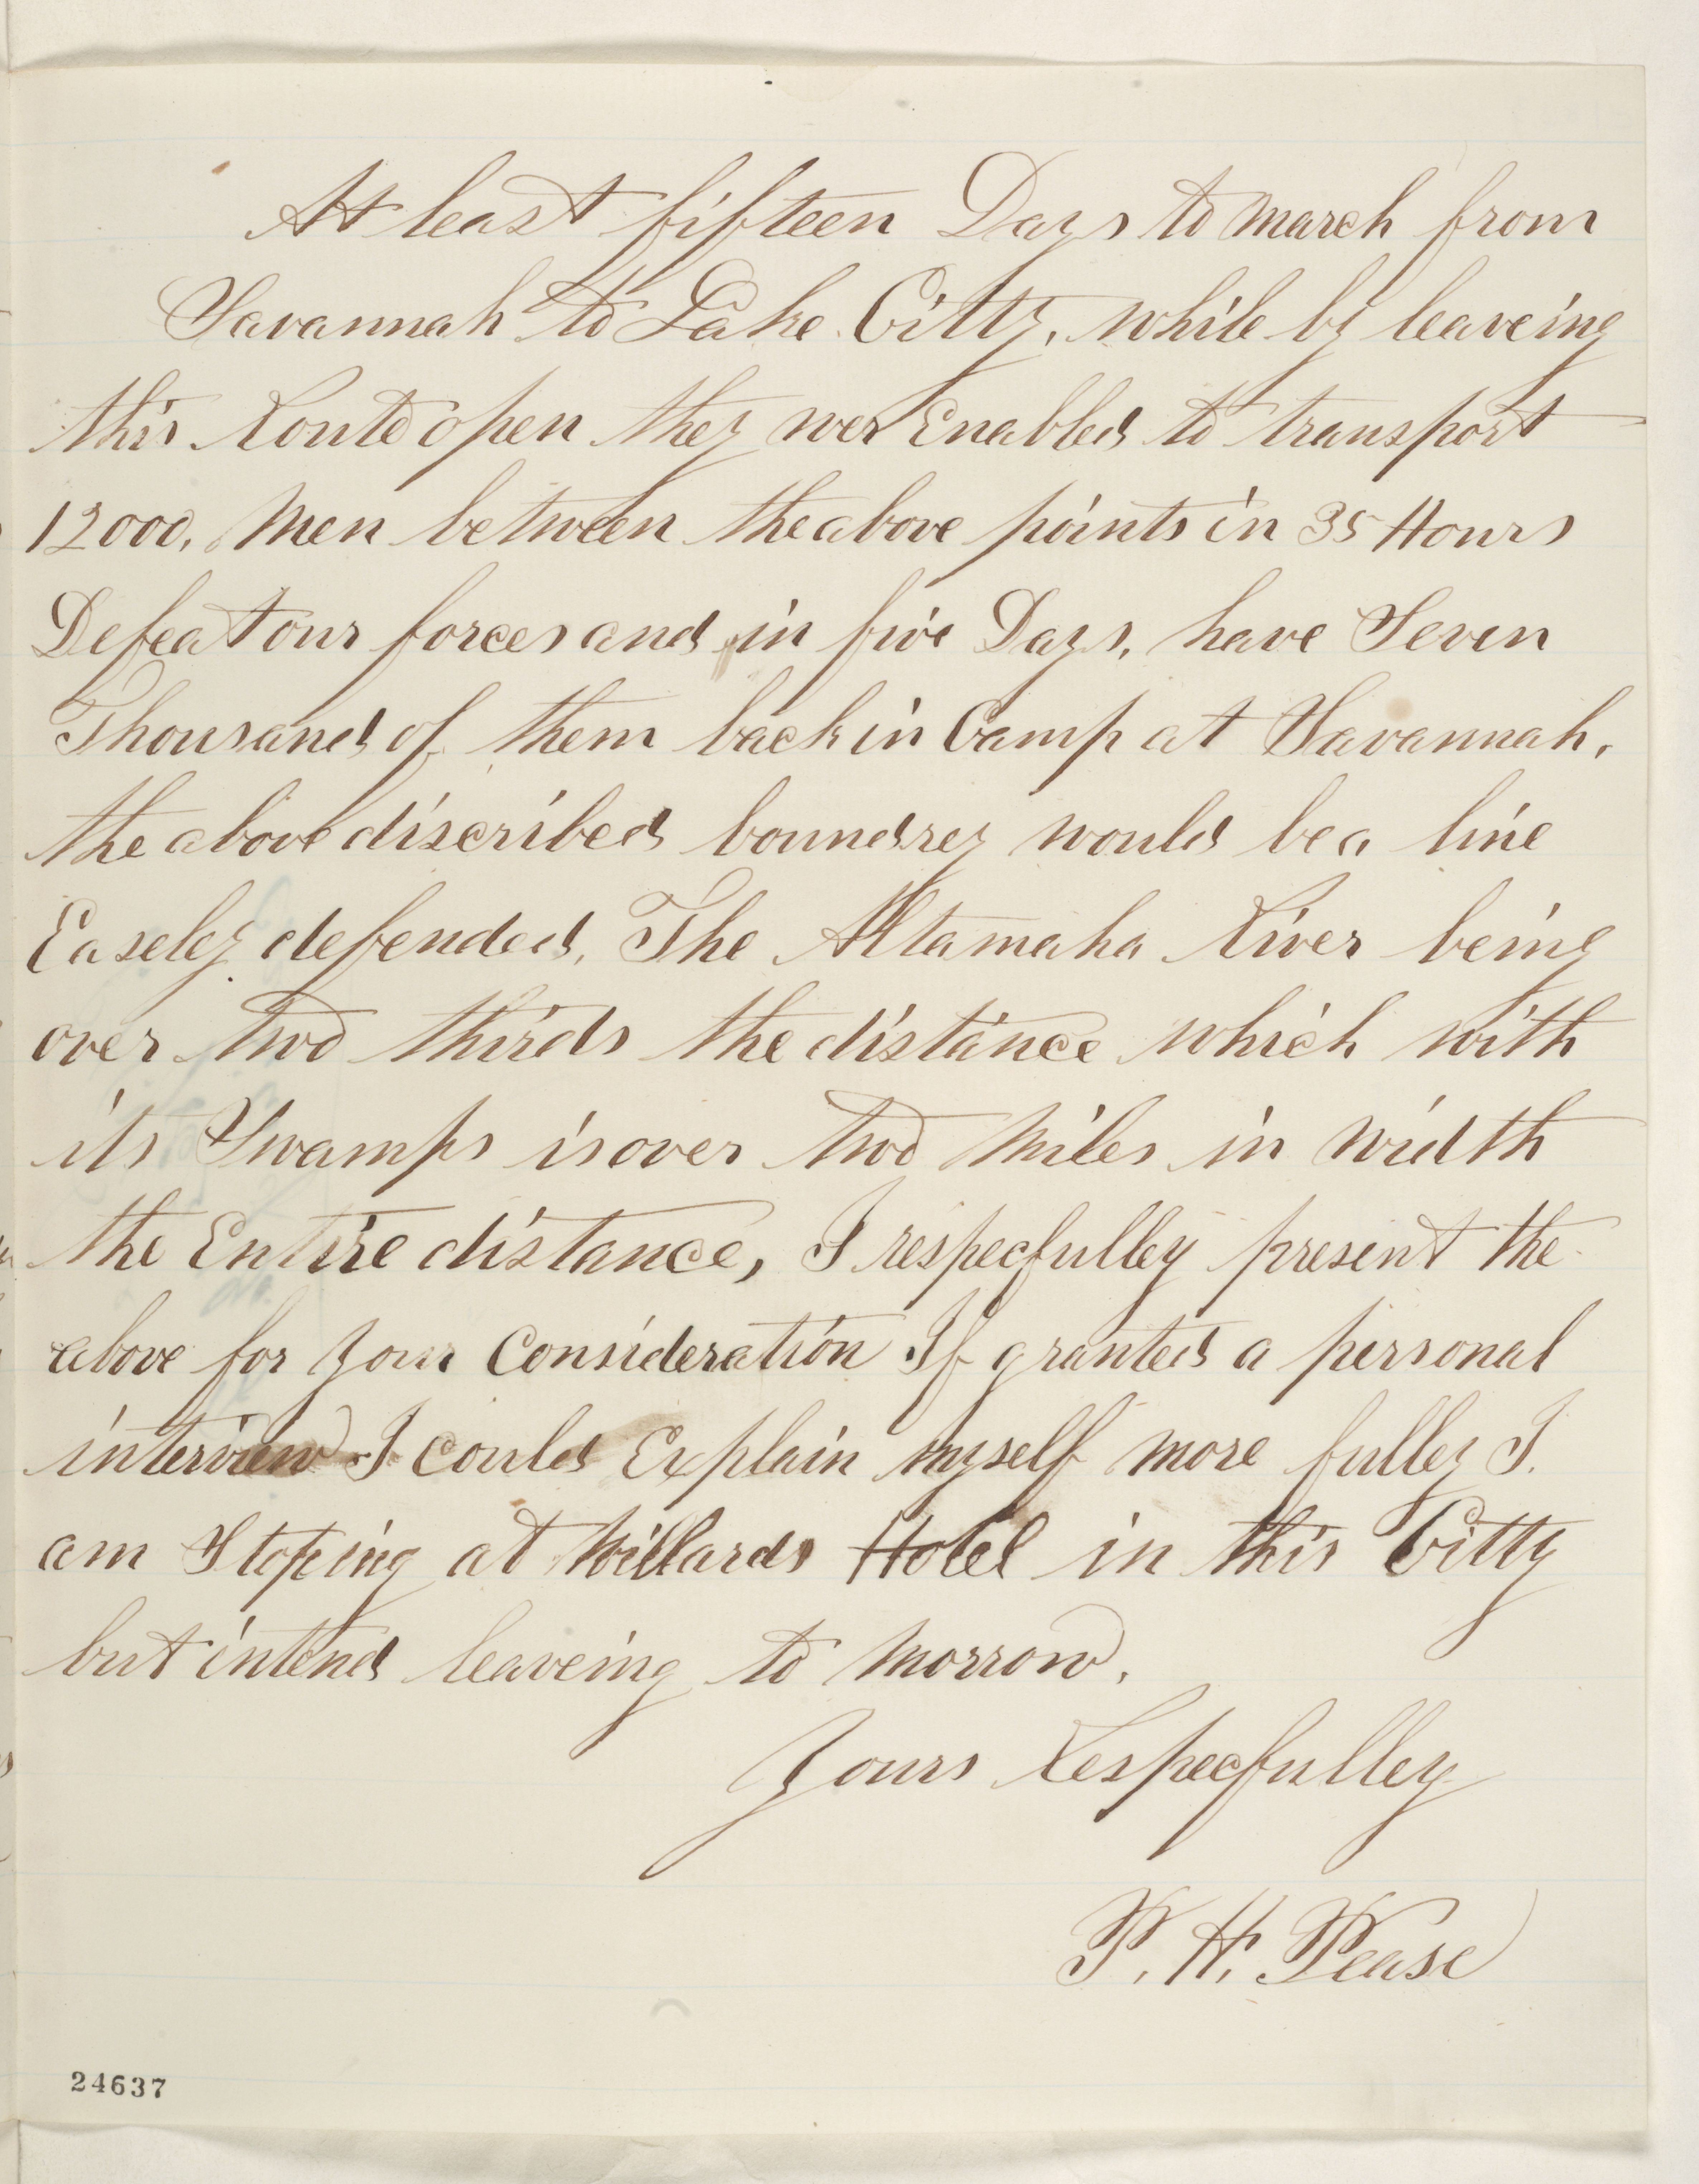 At least fifteen Days to march from
Savannah to Lake Citty, while by leaveing
this Route open they wer Enabled to transport
12000, Men between the above points in 35 Hours
Defeat our forces and in five Days, have Seven
Thousand of them back in Camp at Savannah,
the above discribed boundrey would be a line
Easeley defended, The Altamaha River being
over two thirds the distance which with
its Swamps is over two Miles in width
the Entire distance, I respecfulley present the
above for your Consideration If granted a personal
interview I could Explain myself more fulley I
am Stoping at Willards Hotel in this Citty
but intend leaveing to morrow,
Yours Respecfulley
P. H. Pease
24637